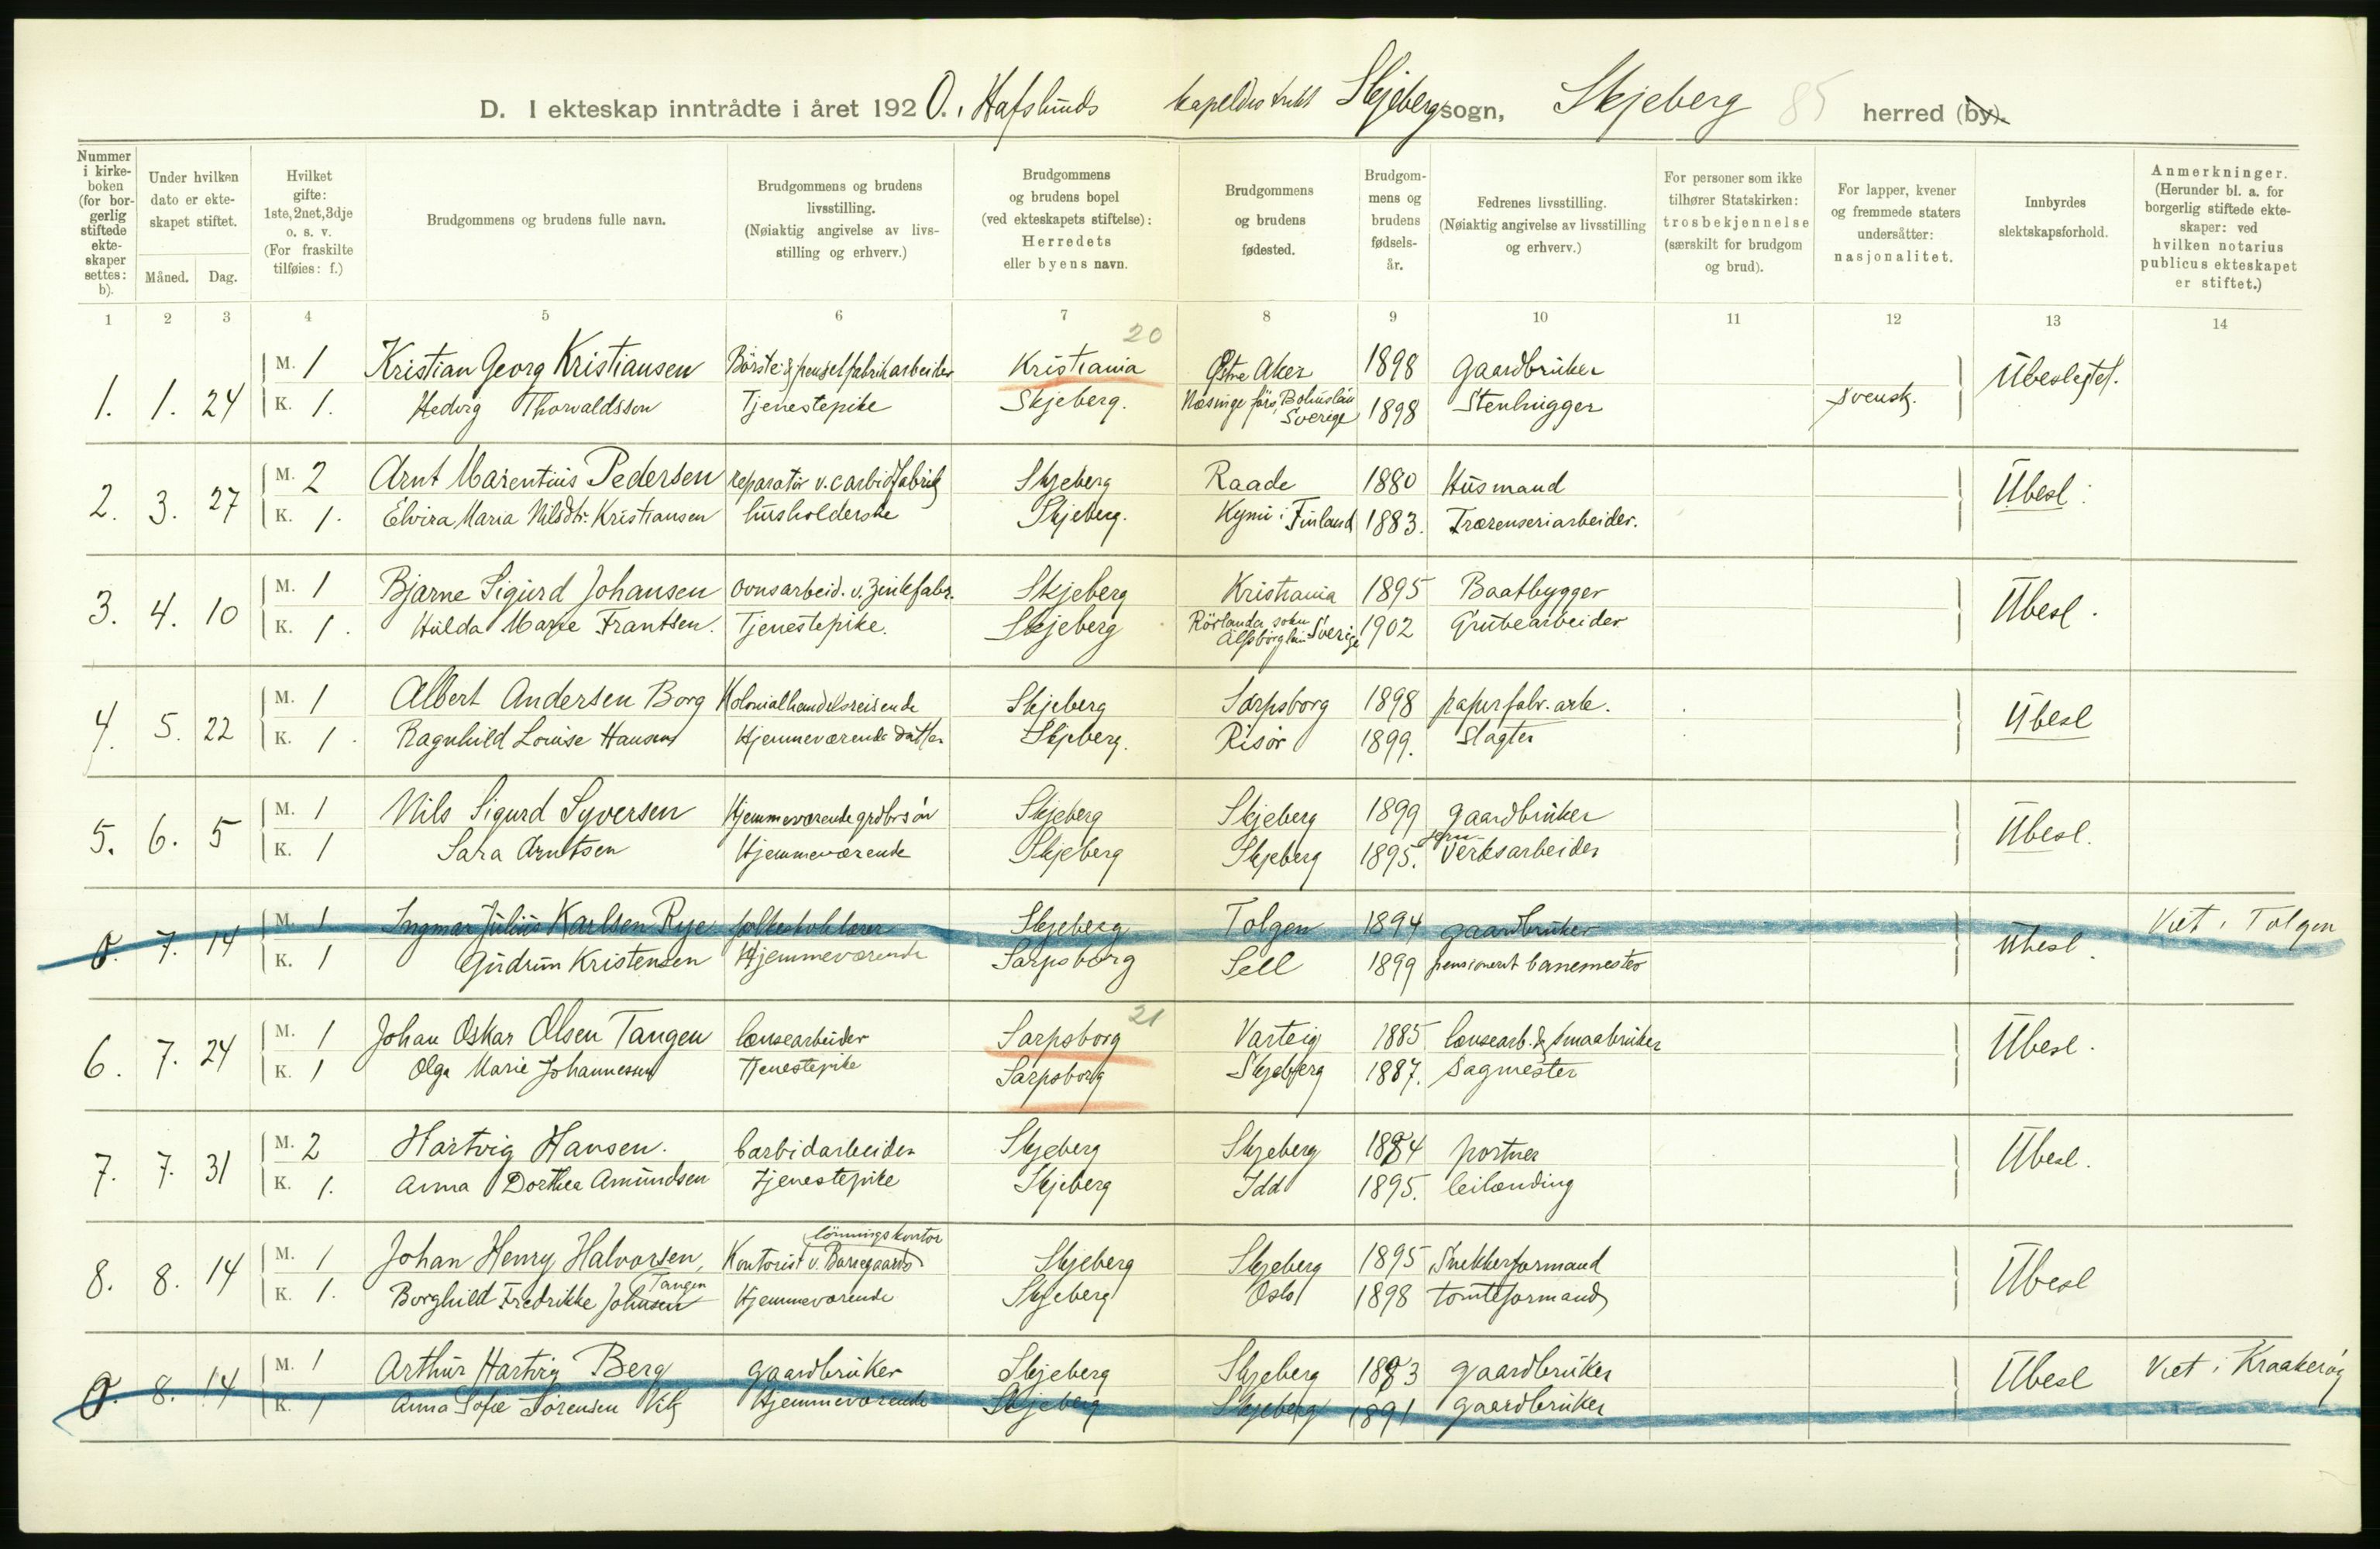 D. I ekteskap inntrådte i året 1920. i Hafslunds kapeldistrikt Skjeberg sogn, Skjeberg 85 herred (by).
Nummer i kirkeboken (for borgerlig stiftede ekteskaper settes: b).
Under hvilken dato er ekteskapet stiftet.
Måned. Dag.
Hvilket gifte: 1ste, 2net, 3dje o. s. v. (For fraskilte tilføies: f.)
Brudgommens og brudens fulle navn.
Brudgommens og brudens livsstilling. (Nøiaktig angivelse av livsstilling og erhverv.)
Brudgommens og brudens bopel (ved ekteskapets stiftelse): Herredets eller byens navn.
Brudgommens og brudens fødested.
Brudgommens og brudens fødselsår.
Fedrenes livsstilling. (Nøiaktig angivelse av livsstilling og erhverv.)
For personer som ikke tilhører Statskirken: trosbekjennelse (særskilt for brudgom og brud).
For lapper, kvener og fremmede staters undersåtter: nasjonalitet.
Innbyrdes slektskapsforhold.
Anmerkninger. (Herunder bl. a. for borgerlig stiftede ekteskaper: ved hvilken notarius publicus ekteskapet er stiftet.)
1 2 3 4 5 6 7 8 9 10 11 12 13 14
20
M. 1 Kristian Georg Kristiansen Börste & penselfabrikarbeider Kristiania Østre Aker 1898 gaardbruker Ubeslegtet.
1. 1. 24 K. 1. Hedvig Thorvaldsson Tjenestepike Skjeberg. Næsinge förs. Bohuslän Sverige 1898 Stenhugger svensk.
M. 2 Arnt Marentius Pedersen reparatör v. carbidfabrik Skjeberg Raade 1880 Husmand Ubesl.
2. 3. 27 K. 1. Elvira Maria Nilsdtr. Kristiansen husholderske Skjeberg. Kymi i Finland 1883. Træsenseriarbeider.
M. 1 Bjarne Sigurd Johansen ovnsarbeid. v. Zinkfabr. Skjeberg Kristiania 1895 Baatbygger Ubesl.
3. 4. 10 K. 1. Hulda Marie Frantsen. Tjenestepike. Skjeberg Rörlanda sokn Elfsborg län Sverige 1902 Grubearbeider
M. 1 Albert Andersen Borg Kolonialhandelsreisende Skjeberg Sarpsborg 1898 papirfabr. arb. Ubesl
4. 5. 22 K. 1. Ragnhild Louise Hansen Hjemmeværende datter Skjeberg. Risör 1899. Slagter
M. 1 Nils Sigurd Syversen Hjemmeværende grdbr sön Skjeberg Skjeberg 1899 gaardbruker Ubesl.
5. 6. 5 K. 1 Sara Arntsen Hjemmeværende Skjeberg Skjeberg 1895. jern-Verksarbeider
M. 1 Ingmar Julius Karlsen Rye folkeskolelærer Skjeberg Tolgen 1894 gaardbruker Ubesl. Viet i Tolgen
0. 7. 14 K. 1 Gudrun Kristensen Hjemmeværende Sarpsborg Sell 1899 pensionert banemester
21
M. 1 Johan Oskar Olsen Tangen lensearbeider Sarpsborg Varteig 1885 lensearb. & smaabruker Ubesl.
6. 7. 24 K. 1 Olga Marie Johannessen Tjenestepike Sarpsborg Skjeberg 1887. Sagmester
M. 2 Hartvig Hansen. Carbidarbeider Skjeberg Skjeberg 1884 portner Ubesl.
7. 7. 31 K. 1. Anna Dorthea Amundsen tjenestepike Skjeberg Idd 1895. leilænding
M. 1 Johan Henry Halvorsen, Kontorist v. Borregaards lönningskontor Skjeberg Skjeberg 1895 Snekkerformand Ubesl
8. 8. 14 K. 1. Borghild Fredrikke Johnsen Tangen Hjemmeværende Skjeberg Oslo 1898 tomteformand
M. 1 Arthur Hartvig Berg gaardbruker Skjeberg Skjeberg 1883 gaardbruker Ubesl Viet i Kraakeröy
0. 8. 14 K. 1 Anna Sofie Sörensen Vik Hjemmeværende Skjeberg Skjeberg 1891 gaardbruker